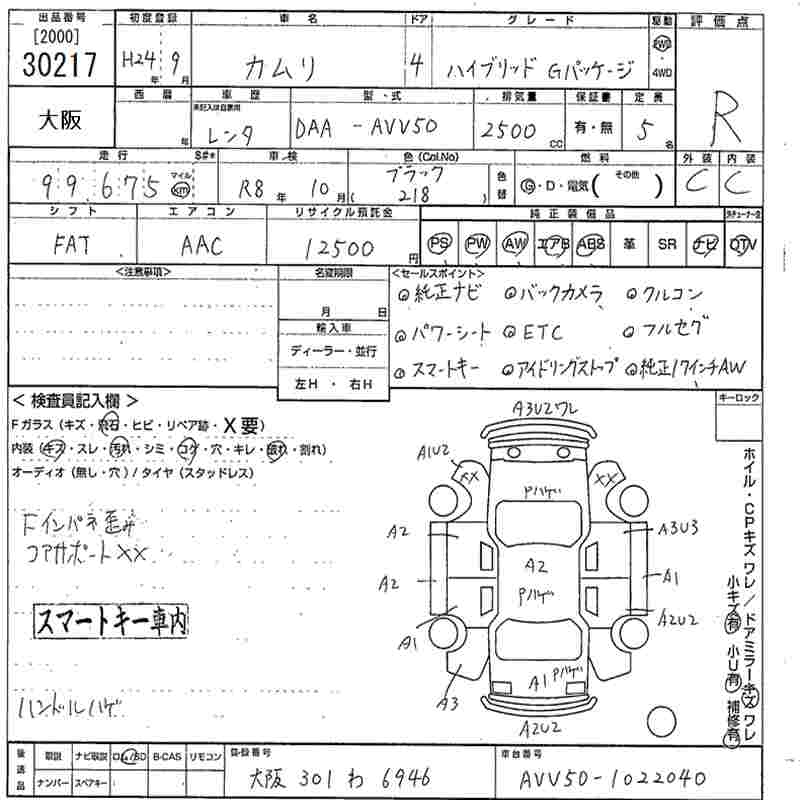 出品番号 初度登録 車名 ドア グレード 駆動 評価点
[2000]
30217 H24年 9月 カムリ 4 ハイブリッド Gパッケージ 2WD・4WD R
大阪 西暦 年 車歴 型・式 排気量 保証書 定員
未記入は自家用
レンタ DAA - AVV50 2500cc 有・無 5名
走行 S#* 車検 色(Col.No) 色替 燃料 外装 内装
99,675 マイル km R8年 10月 ブラック (218) G・D・電気( その他 ) C C
シフト エアコン リサイクル預託金 純正装備品
FAT AAC 12500円 PS PW AW エアB ABS 革 SR ナビ TV
<注意事項> 名変期限 <セールスポイント>
月 日
◎純正ナビ ◎バックカメラ ◎クルコン
輸入車
ディーラー・並行
◎パワーシート ◎ETC ◎フルセグ
左H・右H
◎スマートキー ◎アイドリングストップ ◎純正17インチAW
<検査員記入欄> キーロック
Fガラス(キズ・飛石・ヒビ・リペア跡・X要)
内装(キズ・スレ・汚れ・シミ・コゲ・穴・キレ・破れ・割れ)
オーディオ(無し・穴)/タイヤ(スタッドレス)
Fインパネ歪み
コアサポートXX
スマートキー車内
ハンドルハゲ
A3U2ワレ
A1U2 XX XX
Pハゲ
A2 A3U3
A2
A2 A1
Pハゲ
A1 A2U2
A3 A1 Pハゲ
A2U2
ホイル・CPキズ ワレ/ドアミラーキズ ワレ
小キズ有 小U有 補修有
後送品 取説 ナビ取説 ロム/SD B-CAS リモコン 登録番号 車台番号
ナンバー スペアキー 大阪 301 わ 6946 AVV50-1022040